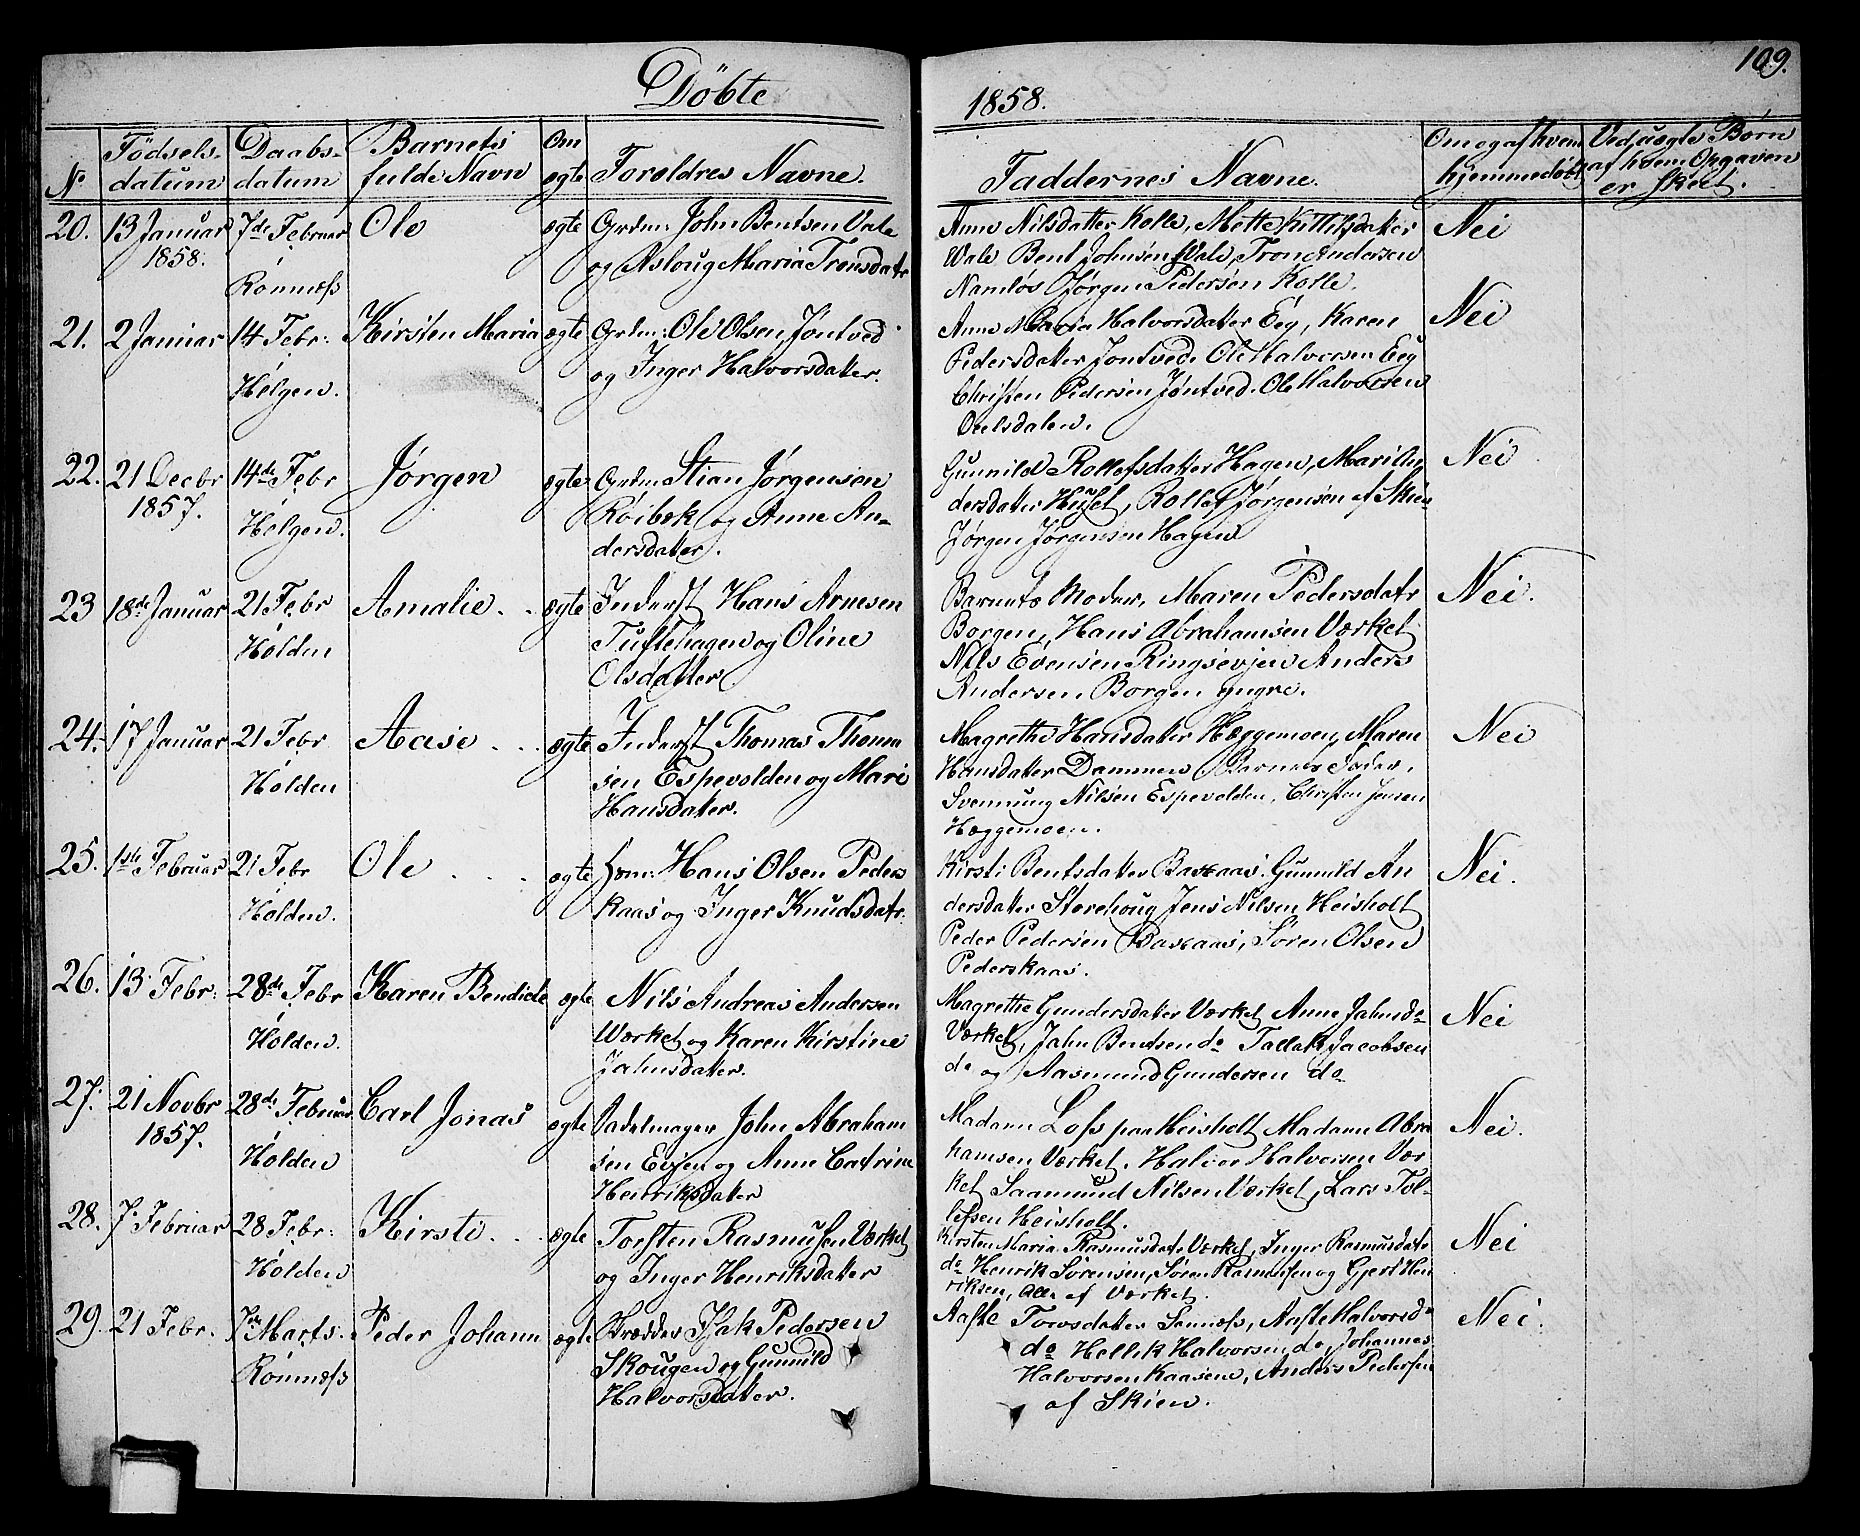 Döbte
1858.
109.
No
Födsels-
datum
Daabs-
datum
Barnets
fulde Navn
Om
ægte
Forældres Navne.
Faddernes Navne.
Om og af hvem
hjemmedöbt
Ved uægte Børn
af hvem Opgaven
er skeet.
20. 13 Januar 7de Februar Ole ægte Grdm: John Bentsen Vale
1858. og Asloug Maria Tronsdatr
Rönnæss
Anne Nilsdatter Kolle, Mette Kittilsdatter Nei
Vale Bent Johnsen Vale, Tron Andersen
Namløs Jørgen Pedersen Kolle.
21. 2 Januar 14 Febr: Kirsten Maria ægte Grdm: Ole Olsen Jøntved
og Inger Halvorsdatter.
Helgen.
Anne Maria Halvorsdatter Eeg, Karen Nei
Pedersdatter Jøntved. Ole Halvorsen Eeg
Christen Pedersen Jøntved. Ole Halvorsen
Ovelsdalen.
22. 21 Decbr 14de Febr Jørgen ægte Grdm: Stian Jørgensen
1857. Röibæk og Anne An-
Helgen. dersdatter.
Gunnild Rollefsdatter Hagen, Mari An Nei
dersdatter Huset, Rollef Jørgensen af Skien
Jørgen Jørgensen Hagen
23 18de Januar 21 Febr Amalie. . . ægte Inderst Hans Arnesen
Holden Tuftehagen og Oline
Olsdatter
Barnets Moder, Maren Pedersdatr Nei.
Borgen, Hans Abrahamsen Værket
Nils Evensen Ringsevjen Anders
Andersen Borgen yngre.
24. 17 Januar 21 Febr Aase . . . ægte Inderst Thomas Thom
Holden sen Espevolden og Mari
Hansdatter.
Magrethe Hansdatter Hæggemoen, Maren Nei
Hansdatter Dammen Barnets Fader,
Svennung Nilsen Espevolden, Christen Jensen
Hæggemoen.
25. 1ste Februar 21 Febr Ole . . . ægte Hans Olsen Peders
Holden. kaas og Inger Knudsdatr.
Kirsti Bentsdatter Baskaas. Gunnild An Nei.
dersdatter Storehoug Jens Nilsen Heisholt
Peder Pedersen Baskaas, Sören Olsen
Pederskaas.
26. 13 Febr: 28de Febr Karen Bendicte ægte Nils Andreas Andersen
Holden. Værket og Karen Kirstine
Jahnsdatter.
Magrethe Gundersdatter Værket Anne Jahnsdr Nei
Værket, Jahn Bentsen do Tallak Jacobsen
do og Aasmund Gundersen do
27. 21 Novbr 28de Februar Carl Jonas ægte Sadelmager John Abraham
1857. sen Evjen og Anne Catrine
Holden Henriksdatter
Madam Loss paa Heisholt Madam Abra Nei.
hamsen Værket. Halvor Halvorsen Vær
ket Saamund Nilsen Værket, Lars Tol-
lefsen Heisholt.
28. 7. Februar 28 Febr: Kirsti . . . ægte Torsten Rasmusen Værket
Holden og Inger Henriksdatter
Kirsten Maria Rasmusdatr Værket, Inger Rasmusdatr Nei
do Henrik Sörensen, Sören Rasmusen og Gjert Hen
riksen, Alle af Værket.
29. 21 Febr. 7de Marts. Peder Johann ægte Skrædder Isak Pedersen
Rönnæss Skougen og Gunnild
Halvorsdatter.
Aaste Torsdatter Sannæss, Aaste Halvorsdr Nei.
do Hellik Halvorsen do, Johannes
Halvorsen Kaasene, Anders Pedersen
af Skien.